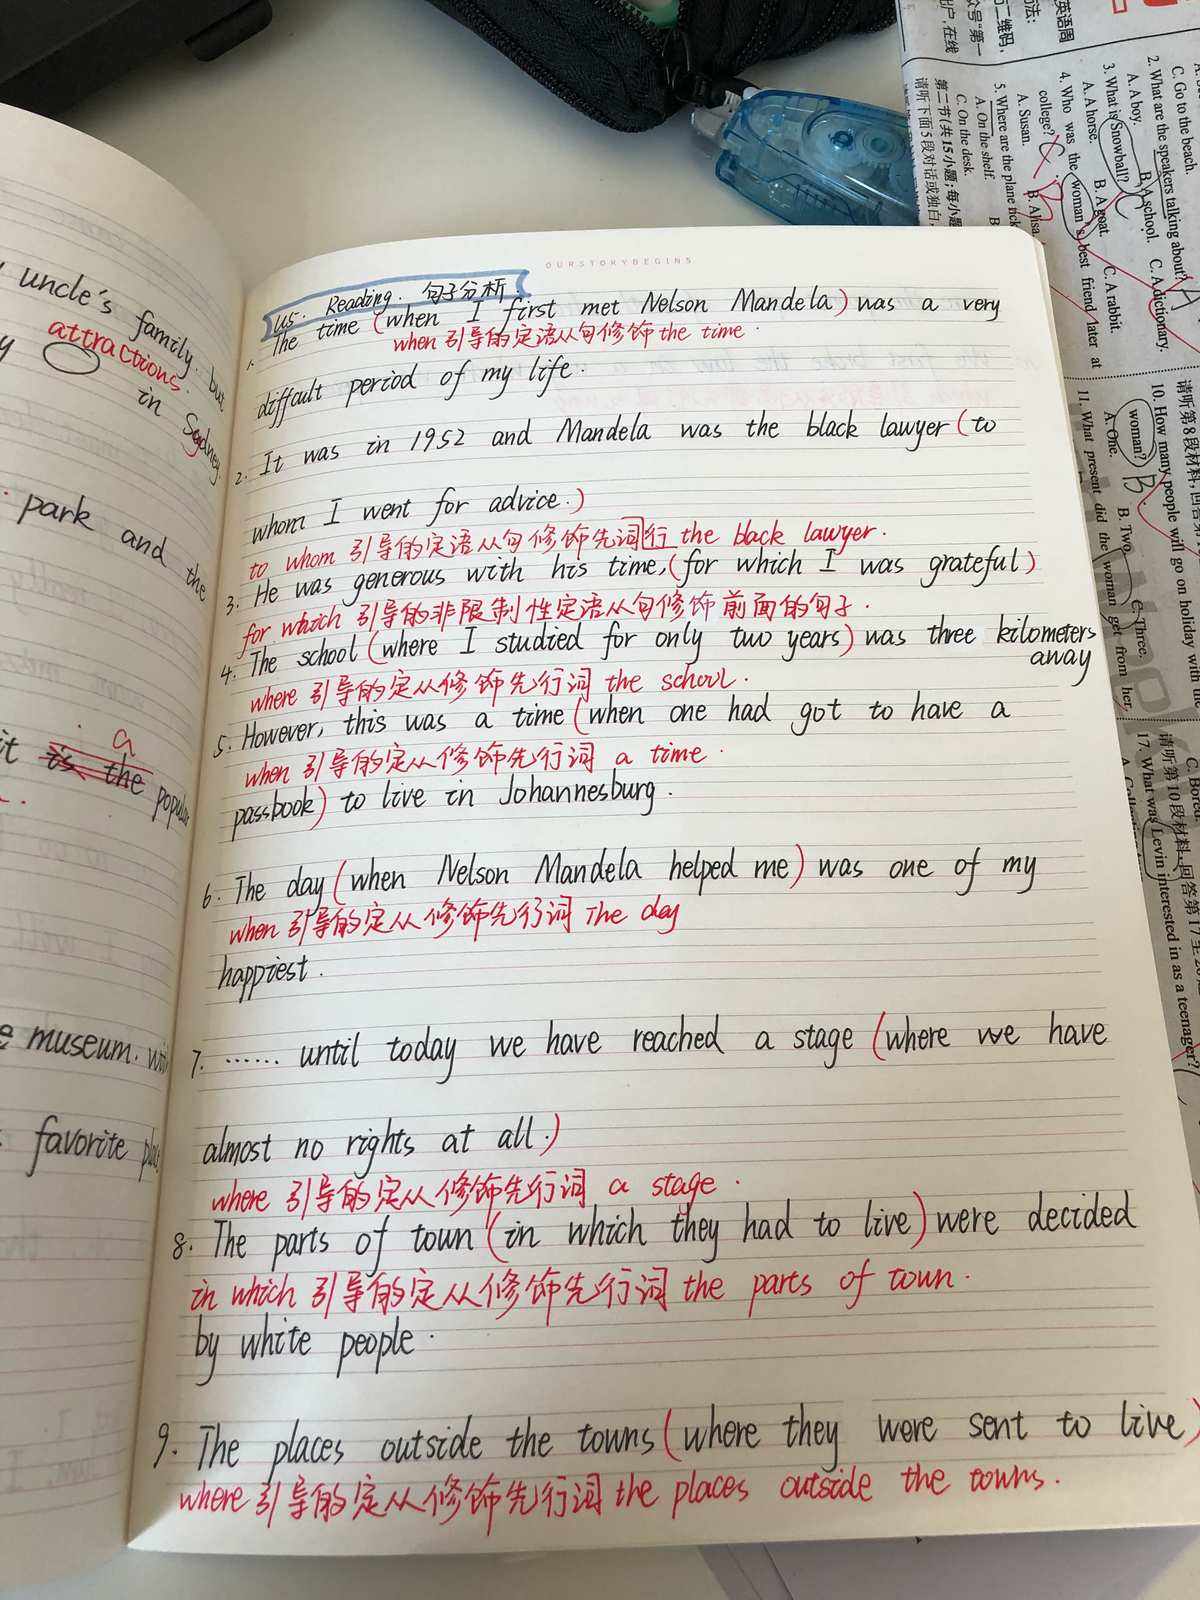 uncle's family. but
attractions.
in Sydney.
park and the
it is the popular
a
museum. with
favorite
OURSTORYBEGINS
U5. Reading. 句子分析.
1. The time (when I first met Nelson Mandela) was a very
when 引导的定语从句修饰 the time.
difficult period of my life.
2. It was in 1952 and Mandela was the black lawyer (to
whom I went for advice.)
to whom 引导的定语从句修饰先词行 the black lawyer.
3. He was generous with his time, (for which I was grateful)
for which 引导的非限制性定语从句修饰前面的句子.
4. The school (where I studied for only two years) was three kilometers
away
where 引导的定从修饰先行词 the school.
5. However, this was a time (when one had got to have a
when 引导的定从修饰先行词 a time.
passbook) to live in Johannesburg.
6. The day (when Nelson Mandela helped me) was one of my
when 引导的定从修饰先行词 The day
happiest.
7. ...... until today we have reached a stage (where we have
almost no rights at all.)
where 引导的定从修饰先行词 a stage.
8. The parts of town (in which they had to live) were decided
in which 引导的定从修饰先行词 the parts of town.
by white people.
9. The places outside the towns (where they were sent to live)
where 引导的定从修饰先行词 the places outside the towns.
C. Go to the beach.
2. What are the speakers talking about?
A. A boy. B. A school. C. A dictionary.
3. What is Snowball?
A. A horse. B. A goat. C. A rabbit.
4. Who was the woman's best friend later at
college?
A. Susan. B. Alisa.
5. Where are the plane
A. On the shelf. B
C. On the desk.
第二节(共15小题;每小题
请听下面5段对话或独白,
请听第8段材料,回答第
10. How many people will go on holiday with the
woman?
A. One. B. Two. C. Three.
B
11. What present did the woman get from her
请听第10段材料,回答第17至20
17. What was Levin interested in as a teenager?
C. Bored.